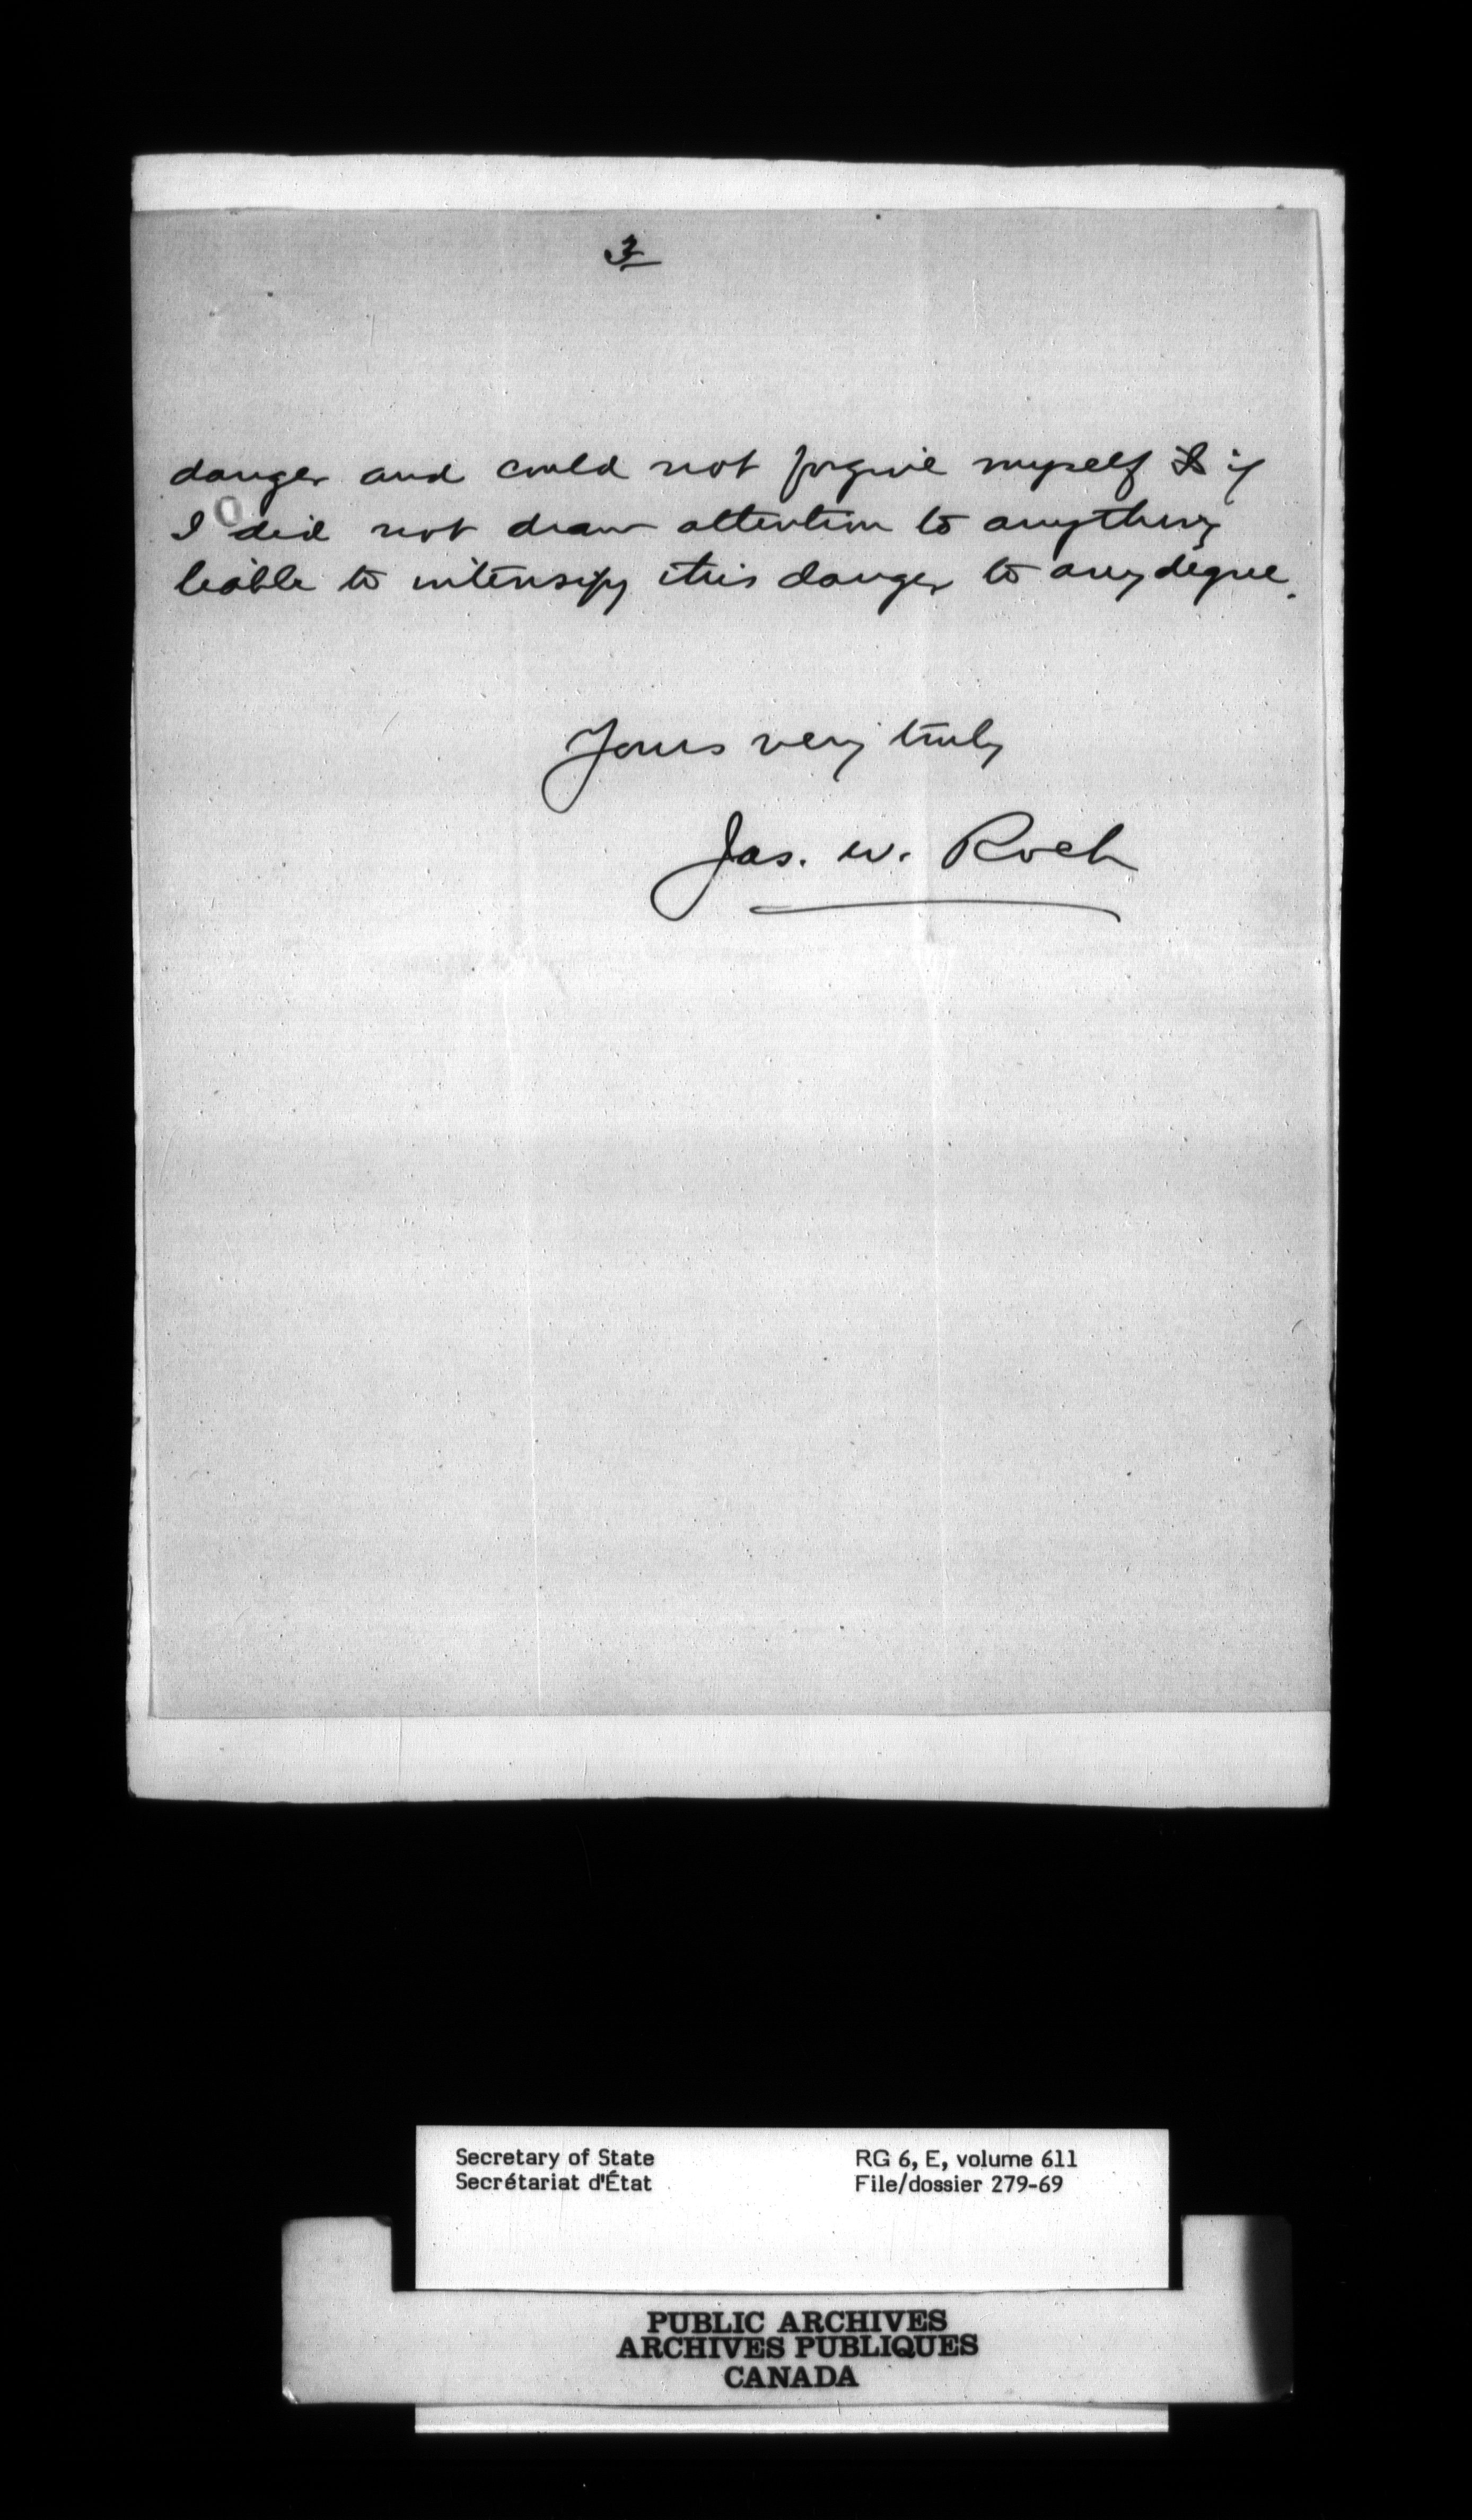 3
danger and could not forgive myself if
I did not draw attention to anything
liable to intensify this danger to any degree.
Yours very truly
Jas. W. Roch
Secretary of State
Secrétariat d'État
RG 6, E, volume 611
File/dossier 279-69
PUBLIC ARCHIVES
ARCHIVES PUBLIQUES
CANADA